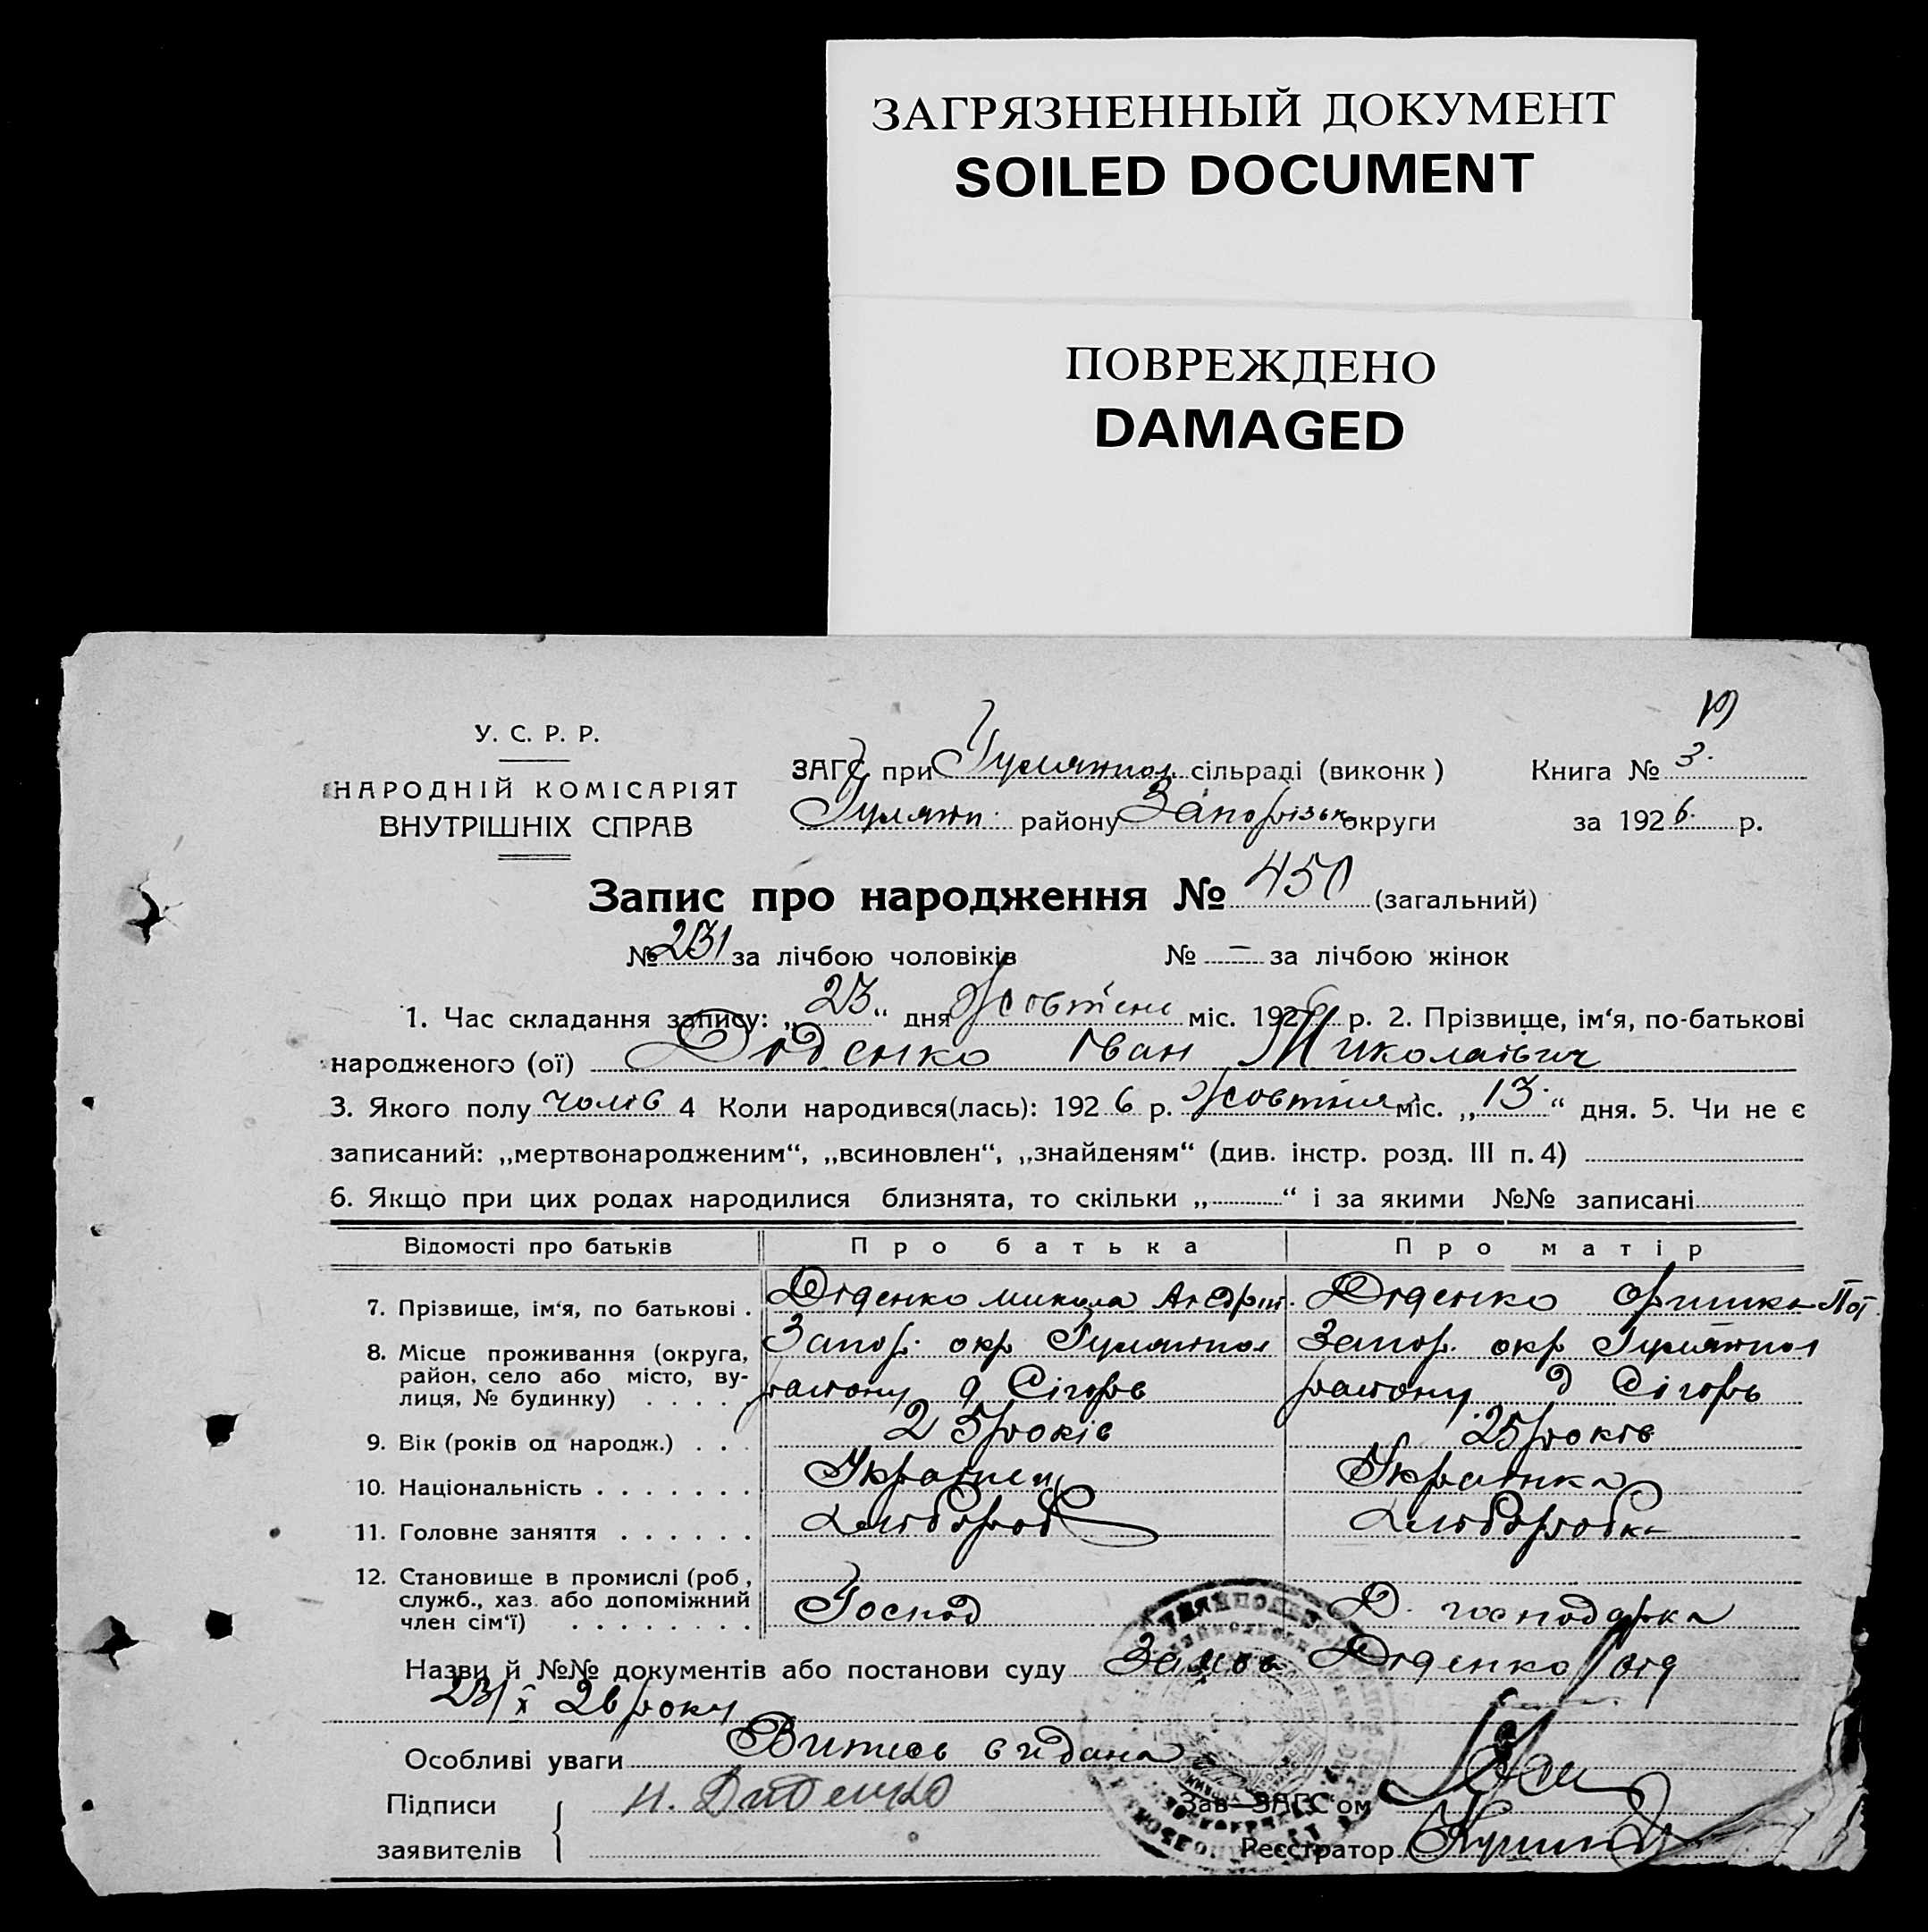 ЗАГРЯЗНЕННЫЙ ДОКУМЕНТ
SOILED DOCUMENT
ПОВРЕЖДЕНО
DAMAGED
19
У. С. Р. Р.
НАРОДНІЙ КОМІСАРІЯТ
ВНУТРІШНІХ СПРАВ
ЗАГС при Гуляипол. сільраді (виконк) Книга № 3.
Гуляип. району Запорізьк округи за 1926 р.
Запис про народження № 450 (загальний)
№ 231 за лічбою чоловіків № — за лічбою жінок
1. Час складання запису: „23“ дня Жовтень міс. 1926 р. 2. Прізвище, ім‘я, по-батькові
народженого (ої) Діденко Іван Миколаївич
3. Якого полу чолів 4 Коли народився(лась): 1926 р. Жовтня міс. „13“ дня. 5. Чи не є
записаний: „мертвонародженим“, „всиновлен“, „знайденям“ (див. інстр. розд. III п. 4)
6. Якщо при цих родах народилися близнята, то скільки „ “ і за якими №№ записані
Відомості про батьків Про батька Про матір
7. Прізвище, ім‘я, по батькові . Діденко Микола Андрій. Діденко Оришка
8. Місце проживання (округа, район, село або місто, вулиця, № будинку) Запор. окр Гуляипол Запор. окр Гуляипол
району району
9. Вік (років од народж.) . . . 25 років 25 років
10. Національність . . . . . . . Українец Українка
11. Головне заняття . . . . . . Хлібороб Хліборобка
12. Становище в промислі (роб, служб., хаз. або допоміжний член сім‘ї) . . . . . . . . Господ Д. господарка
Назви й №№ документів або постанови суду Заява Діденко від
23/X 26 року
Особливі уваги Витись видана
Підписи заявителів Н. Диденко
Зав—ЗАГС‘ом
Реєстратор